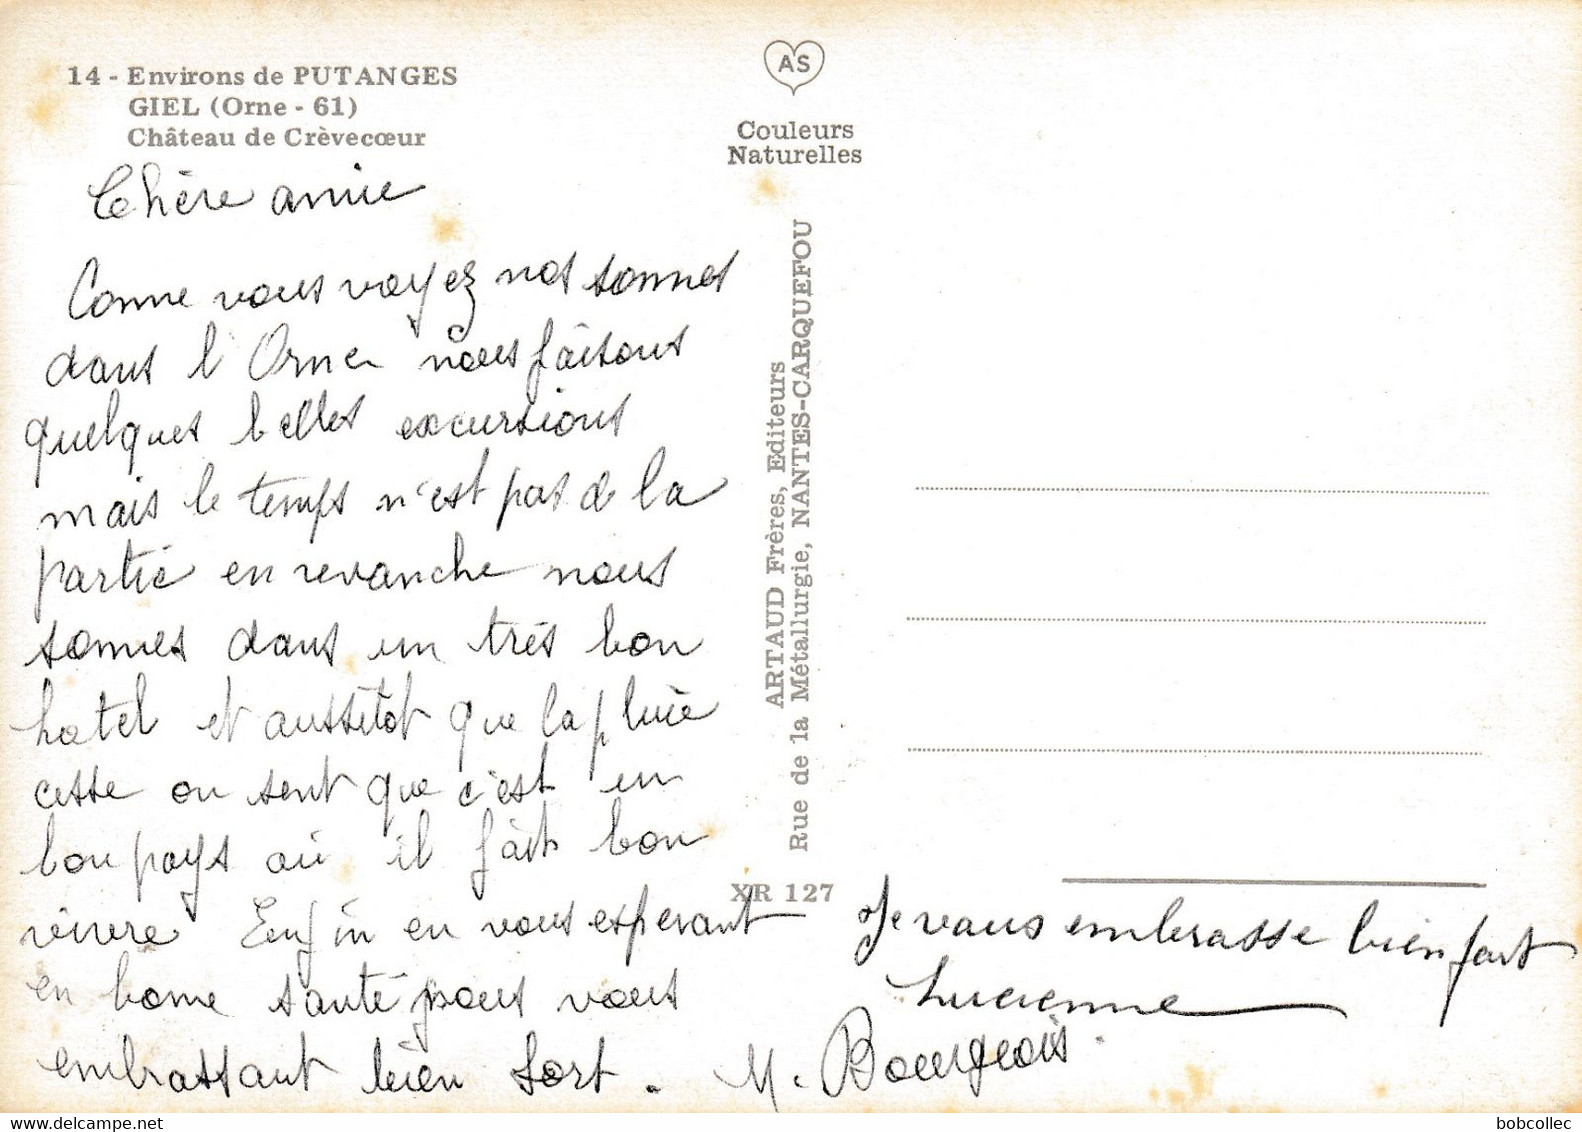 14 - Environs de PUTANGES
GIEL (Orne - 61)
Château de Crèvecœur
AS
Couleurs
Naturelles
Chère amie
Comme vous voyez nos sommes
dans l'Orne nous faisons
quelques belles excursions
mais le temps n'est pas de la
partie en revanche nous
sommes dans un très bon
hotel et aussitot que la pluie
cesse on sent que c'est un
bon pays où il fait bon
vivre Enfin en vous esperant
en bonne santé nous vous
embrassant bien fort. M. Bourgeois.
ARTAUD Frères, Editeurs
Rue de la Métallurgie, NANTES-CARQUEFOU
XR 127
Je vous embrasse bien fort
Lucienne
bobcollec